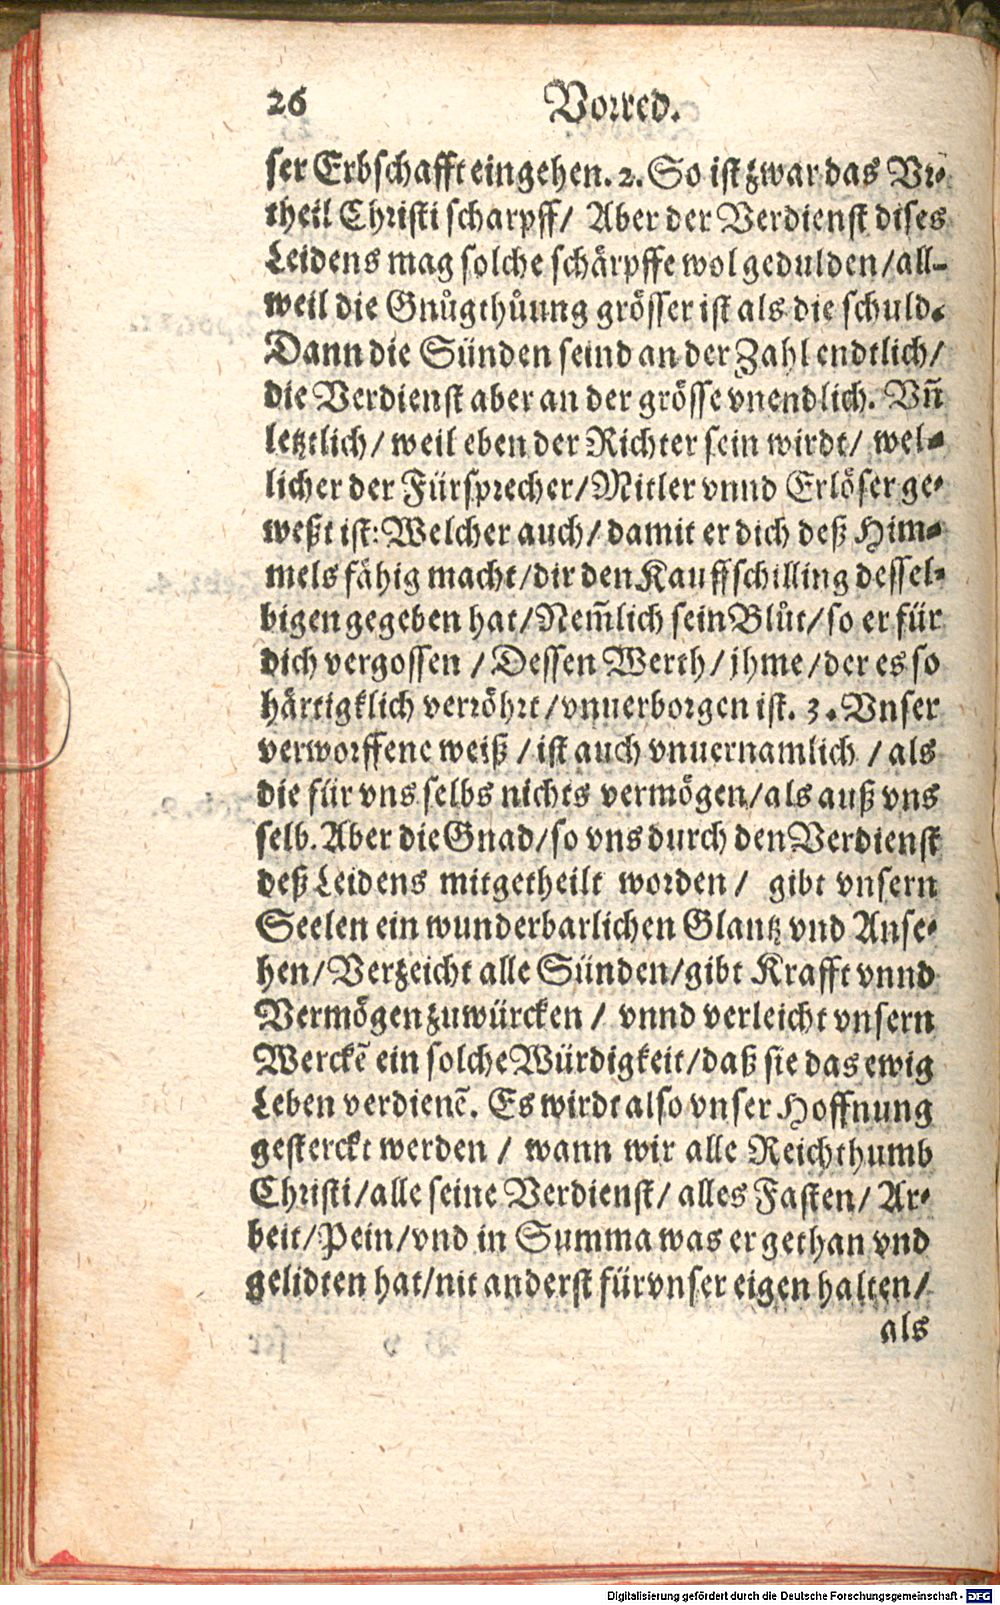 26 Vorred.
ser Erbschafft eingehen. 2. So ist zwar das Vr-
theil Christi scharpff/ Aber der Verdienst dises
Leidens mag solche schärpffe wol gedulden/all-
weil die Gnůgthůung grösser ist als die schuld.
Dann die Sünden seind an der Zahl endtlich/
die Verdienst aber an der grösse vnendlich. Vn̄
letztlich/ weil eben der Richter sein wirdt/ wel-
licher der Fürsprecher/Mitler vnnd Erlöser ge-
weßt ist: Welcher auch/ damit er dich deß Him-
mels fähig macht/dir den Kauffschilling dessel-
bigen gegeben hat/Nem̄lich sein Blůt/so er für
dich vergossen / Dessen Werth/ jhme/der es so
härtigklich verröhrt/vnuerborgen ist. 3. Vnser
verworffene weiß / ist auch vnuernamlich / als
die für vns selbs nichts vermögen/als auß vns
selb. Aber die Gnad/so vns durch den Verdienst
deß Leidens mitgetheilt worden/ gibt vnsern
Seelen ein wunderbarlichen Glantz vnd Anse-
hen/Verzeicht alle Sünden/gibt Krafft vnnd
Vermögen zuwürcken / vnnd verleicht vnsern
Werckē ein solche Würdigkeit/daß sie das ewig
Leben verdienē. Es wirdt also vnser Hoffnung
gesterckt werden / wann wir alle Reichthumb
Christi/alle seine Verdienst/ alles Fasten/ Ar-
beit/Pein/vnd in Summa was er gethan vnd
gelidten hat/nit anderst für vnser eigen halten/
als
Digitalisierung gefördert durch die Deutsche Forschungsgemeinschaft - DFG